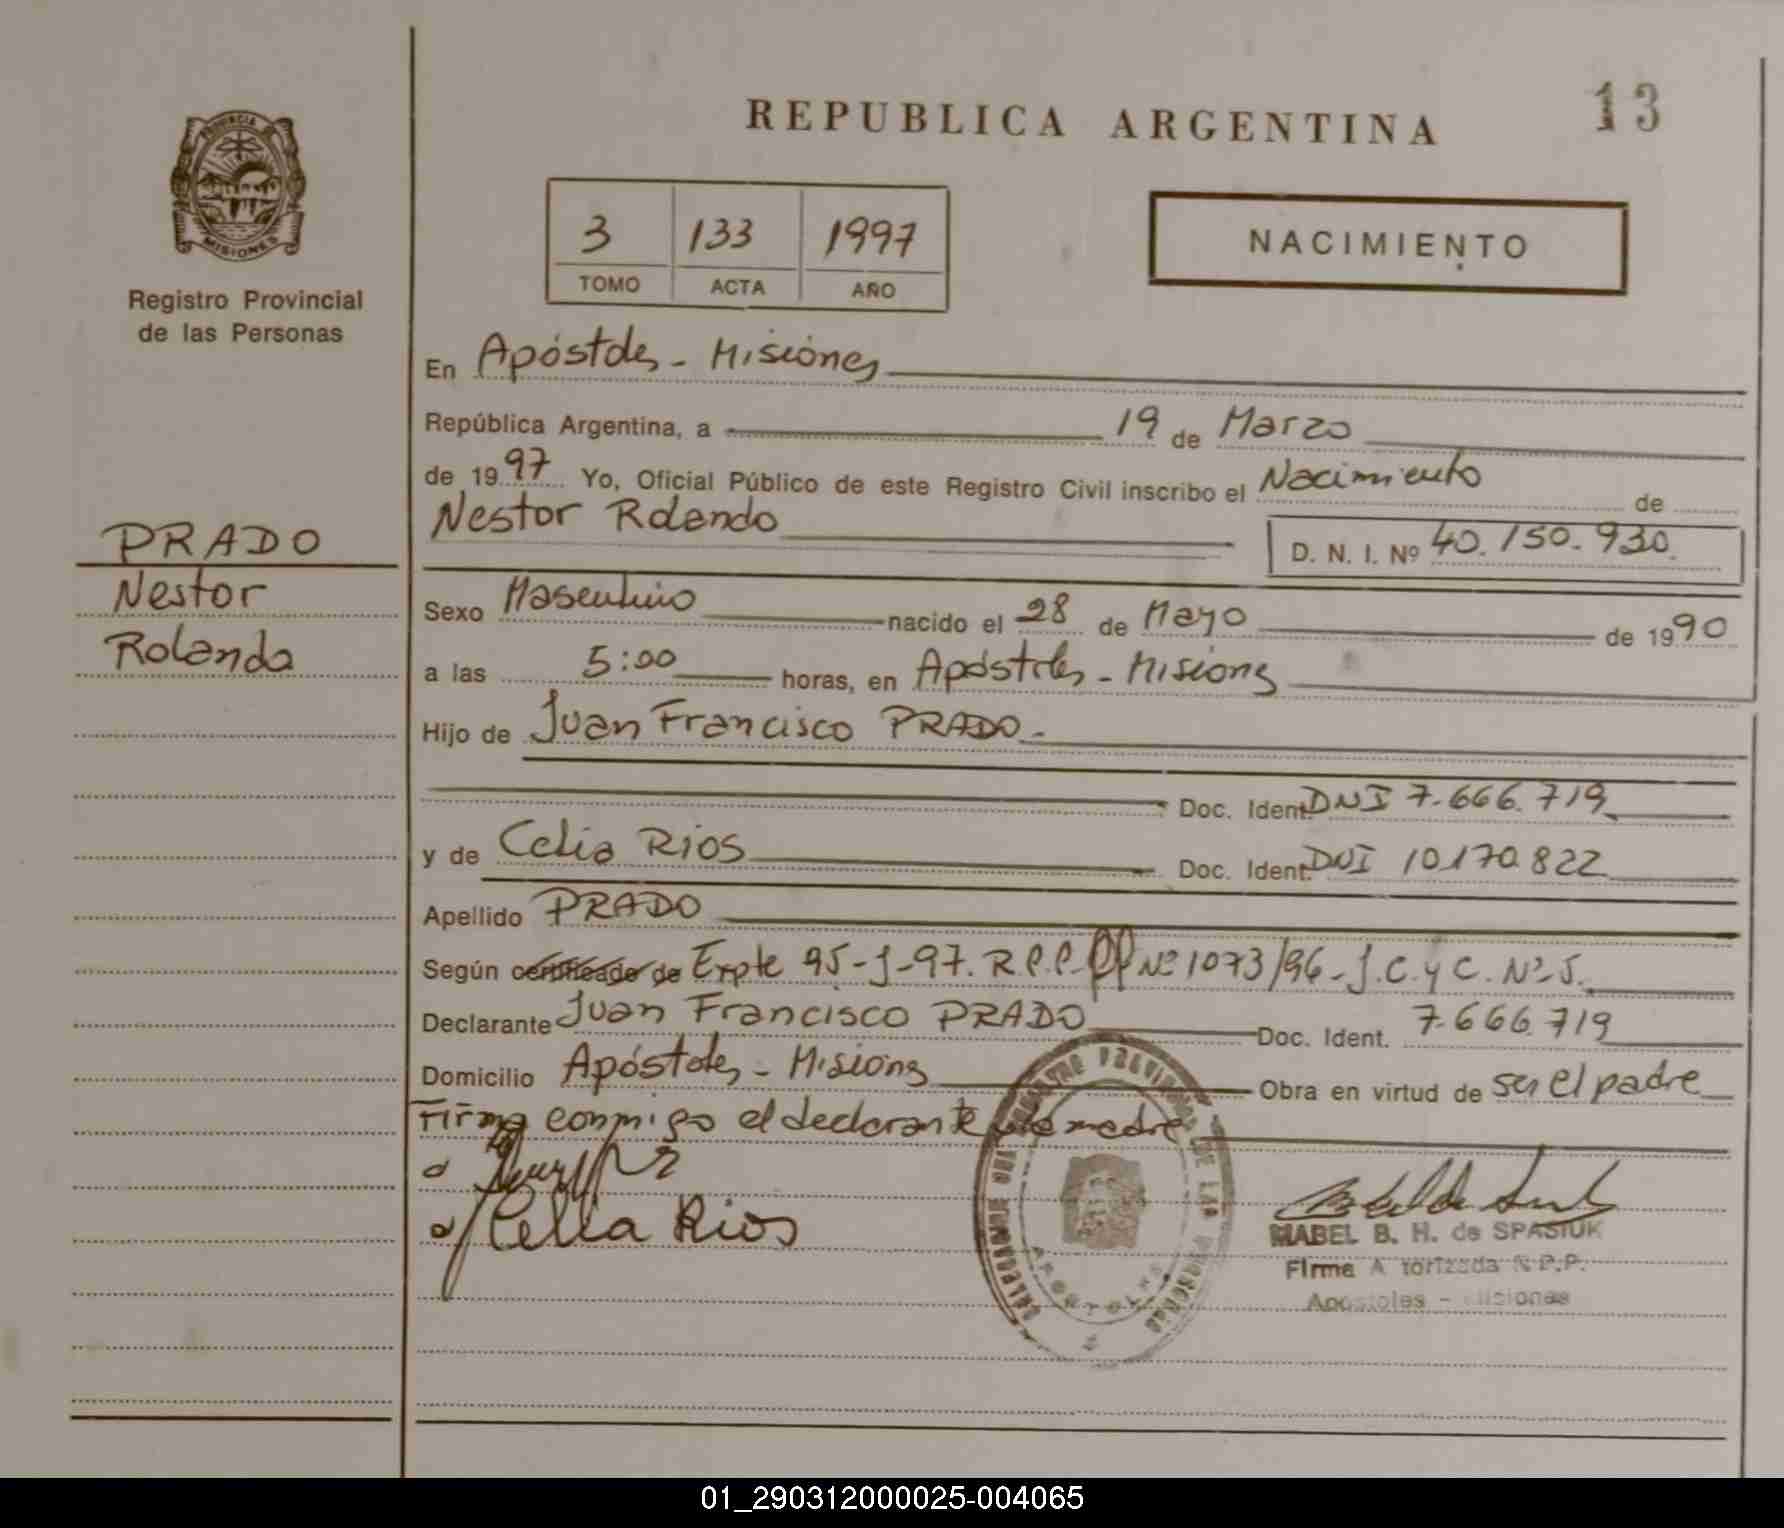 PROVINCIA DE
MISIONES
Registro Provincial
de las Personas
PRADO
Nestor
Rolando
REPUBLICA ARGENTINA
13
3 133 1997
TOMO ACTA AÑO
NACIMIENTO
En Apóstoles - Misiones
República Argentina, a 19 de Marzo
de 1997 Yo, Oficial Público de este Registro Civil inscribo el Nacimiento de
Nestor Rolando D. N. I. Nº 40.150.930.
Sexo Masculino nacido el 28 de Mayo de 1990
a las 5:00 horas, en Apóstoles - Misiones
Hijo de Juan Francisco PRADO-
Doc. Ident. DNI 7.666.719
y de Celia Rios Doc. Ident. DNI 10170.822
Apellido PRADO
Según certificado de Expte 95-J-97. R.P.P. Nº 1073/96-J.C.y C. Nº 5.
Declarante Juan Francisco PRADO Doc. Ident. 7.666.719
Domicilio Apóstoles - Misiones Obra en virtud de ser el padre
Firma conmigo el declarante madre
Celia Rios
MABEL B. H. de SPASIUK
Firma A torizada R.P.P.
Apostoles - Misiones
PROVINCIAL DE LAS PERSONAS
APOSTOLES
01_290312000025-004065